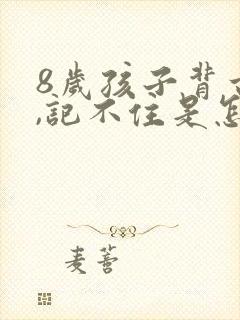 8岁孩子背
,记不住是怎
麦蕾